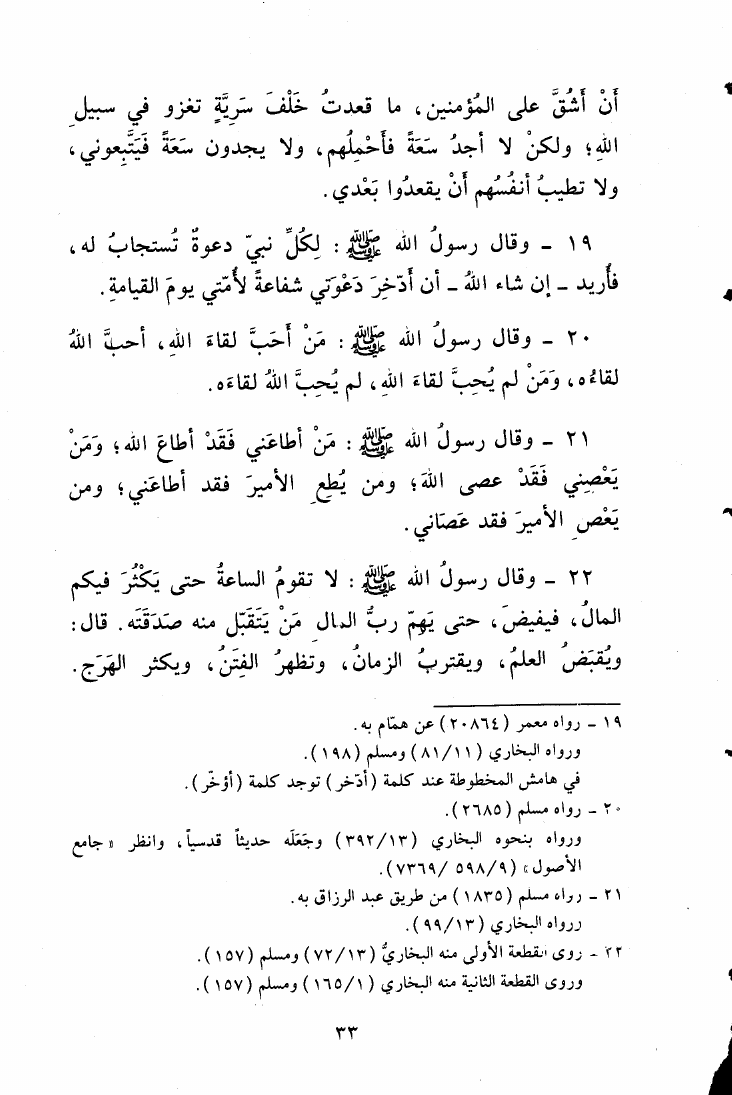 أَنْ أَشُقَّ على المُؤمنين، ما قعدتُ خَلْفَ سَرِيَّةٍ تغزو في سبيلِ
اللهِ؛ ولكنْ لا أجدُ سَعَةً فأَحْمِلُهم، ولا يجدون سَعَةً فَيَتَّبِعوني،
ولا تطيبُ أنفُسُهم أَنْ يقعدُوا بَعْدي.
١٩ - وقال رسولُ الله ﷺ: لِكُلِّ نبيّ دعوةٌ تُستجابُ له،
فأُريد - إن شاء اللهُ - أن أَدّخِرَ دَعْوَتي شفاعةً لأُمّتي يومَ القيامةِ.
٢٠ - وقال رسولُ الله ﷺ: مَنْ أَحَبَّ لقاءَ اللهِ، أحبَّ اللهُ
لقاءُه، وَمَنْ لم يُحِبَّ لقاءَ اللهِ، لم يُحِبَّ اللهُ لقاءَه.
٢١ - وقال رسولُ الله ﷺ: مَنْ أطاعَني فَقَدْ أطاعَ الله؛ وَمَنْ
يَعْصِني فَقَدْ عصى اللهَ؛ ومن يُطعِ الأميرَ فقد أطاعَني؛ ومن
يَعْصِ الأميرَ فقد عَصَاني.
٢٢ - وقال رسولُ الله ﷺ: لا تقومُ الساعةُ حتى يَكْثُرَ فيكم
المالُ، فيفيضَ، حتى يَهِمّ ربُّ المالِ مَنْ يَتَقَبّل منه صَدَقَتَه. قال:
ويُقبَضُ العلمُ، ويقتربُ الزمانُ، وتظهرُ الفِتَنُ، ويكثر الهَرَج.
١٩ - رواه معمر (٢٠٨٦٤) عن همّام به.
ورواه البخاري (٨١/١١) ومسلم (١٩٨).
في هامش المخطوطة عند كلمة (أدّخر) توجد كلمة (أؤخّر).
٢٠ - رواه مسلم (٢٦٨٥).
ورواه بنحوه البخاري (٣٩٢/١٣) وجَعَلَه حديثاً قدسياً، وانظر «جامع
الأصول» (٥٩٨/٩ /٧٣٦٩).
٢١ - رواه مسلم (١٨٣٥) من طريق عبد الرزاق به.
ررواه البخاري (٩٩/١٣).
٢٢ - روى القطعة الأولى منه البخاريُّ (٧٢/١٣) ومسلم (١٥٧).
وروى القطعة الثانية منه البخاري (١٦٥/١) ومسلم (١٥٧).
٣٣